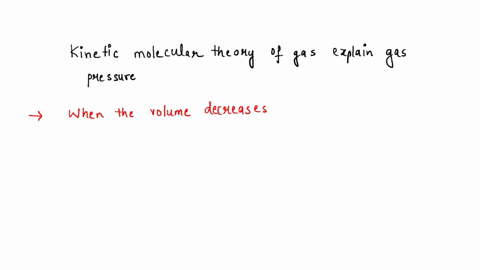 Kinetic molecular theory of gas explain gas
pressure
→ When the volume decreases